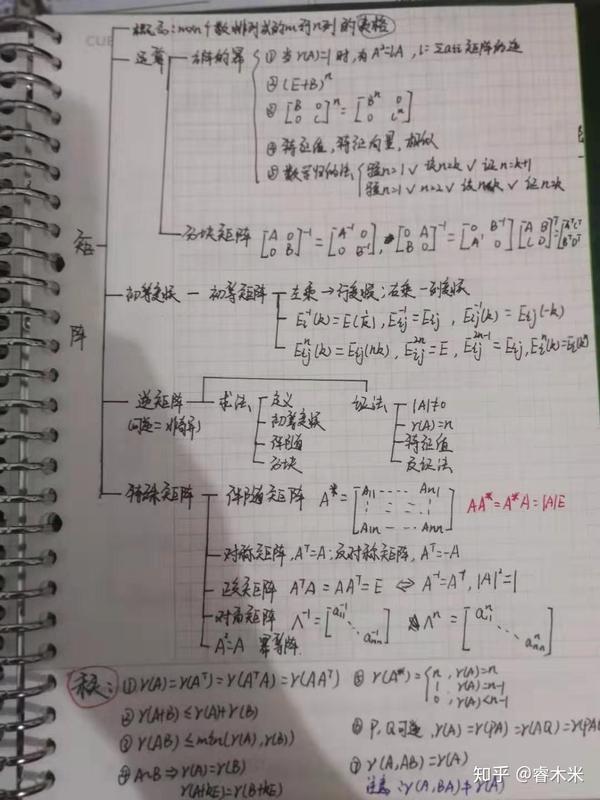 概念:m×n个数排列成的m行n列的表格
运算 方阵的幂 ①当r(A)=1时,有A²=lA, l=Σaii 矩阵的迹
②(E+B)ⁿ
③[B 0; 0 C]ⁿ=[Bⁿ 0; 0 Cⁿ]
④特征值,特征向量,相似
⑤数学归纳法 验n=1√ 设n=k√ 证n=k+1
验n=1√ n=2√ 设n<k√ 证n=k
分块矩阵 [A 0; 0 B]⁻¹=[A⁻¹ 0; 0 B⁻¹], [0 A; B 0]⁻¹=[0 B⁻¹; A⁻¹ 0] [A B; C D]ᵀ=[Aᵀ Cᵀ; Bᵀ Dᵀ]
矩阵
初等变换 — 初等矩阵 左乘→行变换;右乘—列变换
Ei⁻¹(k)=E(1/k), Eij⁻¹=Eij, Eij⁻¹(k)=Eij(-k)
Eijⁿ(k)=Eij(nk), Eij²ⁿ=E, Eij²ⁿ⁻¹=Eij, Eiⁿ(k)=Ei(kⁿ)
逆矩阵 求法 定义 证法 |A|≠0
(可逆=非奇异) 初等变换 r(A)=n
伴随 特征值
分块 反证法
特殊矩阵 伴随矩阵 A*=[A11 ---- An1; A1n ---- Ann] AA*=A*A=|A|E
对称矩阵,Aᵀ=A;反对称矩阵,Aᵀ=-A
正交矩阵 AᵀA=AAᵀ=E ⇔ A⁻¹=Aᵀ, |A|²=1
对角矩阵 Λ⁻¹=[a11⁻¹ ⋱ ann⁻¹] Λⁿ=[a11ⁿ ⋱ annⁿ]
A²=A 幂等阵
秩: ①r(A)=r(Aᵀ)=r(AᵀA)=r(AAᵀ) ⑤r(A*)={n, r(A)=n
1, r(A)=n-1
0, r(A)<n-1
②r(A+B)≤r(A)+r(B)
③r(AB)≤min(r(A),r(B)) ⑥P,Q可逆,r(A)=r(PA)=r(AQ)=r(PA
④A~B⇒r(A)=r(B) ⑦r(A,AB)=r(A)
r(A+kE)=r(B+kE) 注意:r(A,BA)≠r(A)
知乎 @睿木米